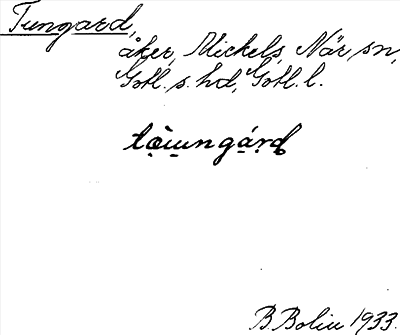 Tungard,
åker, Mickels, När, sn,
Gotl. s. hd, Gotl. l.
B. Bolin 1933.